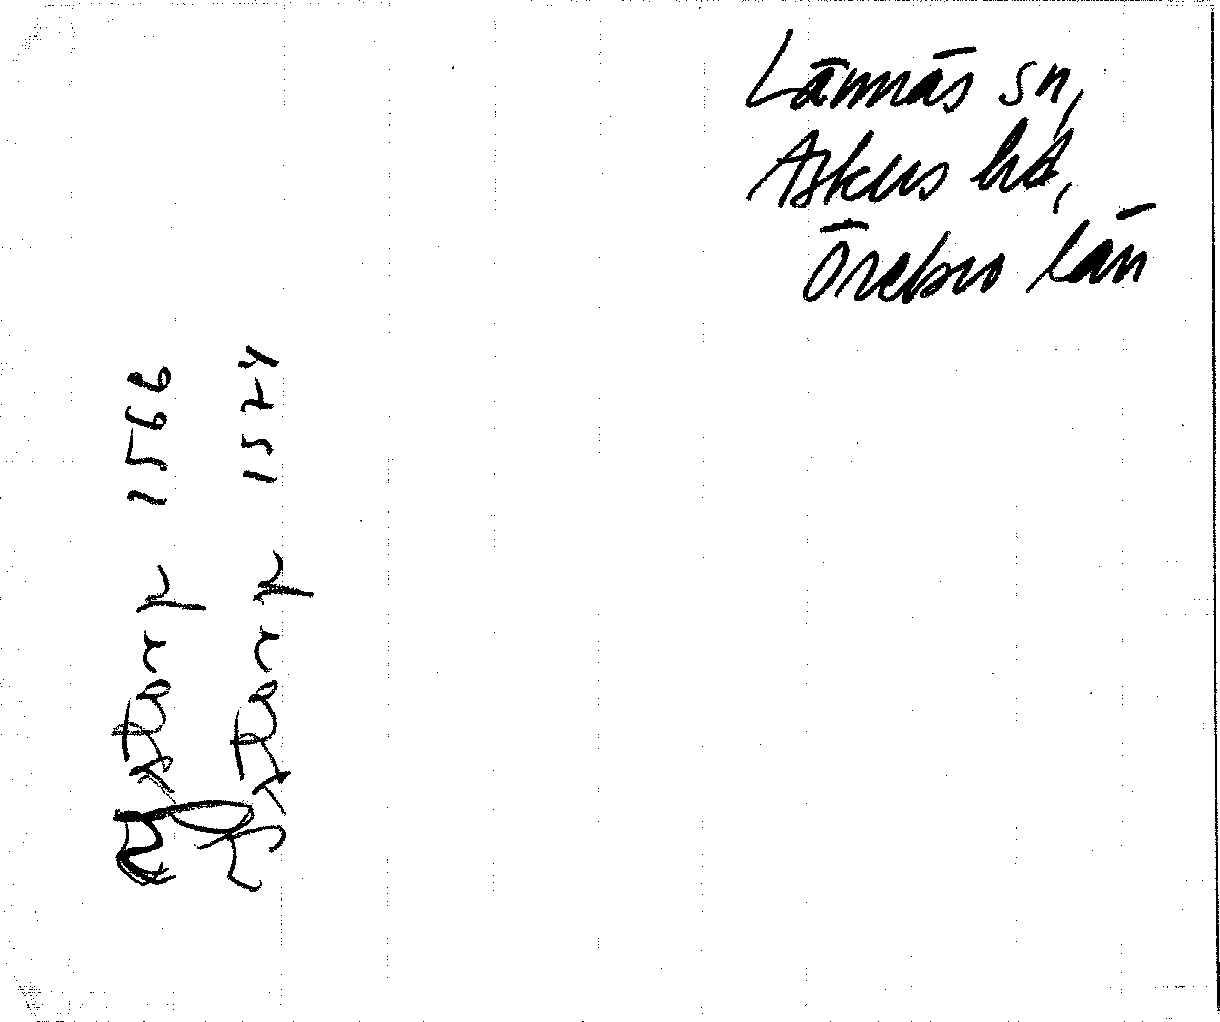 Lännäs sn,
Askers hd,
Örebro län
1566
1574